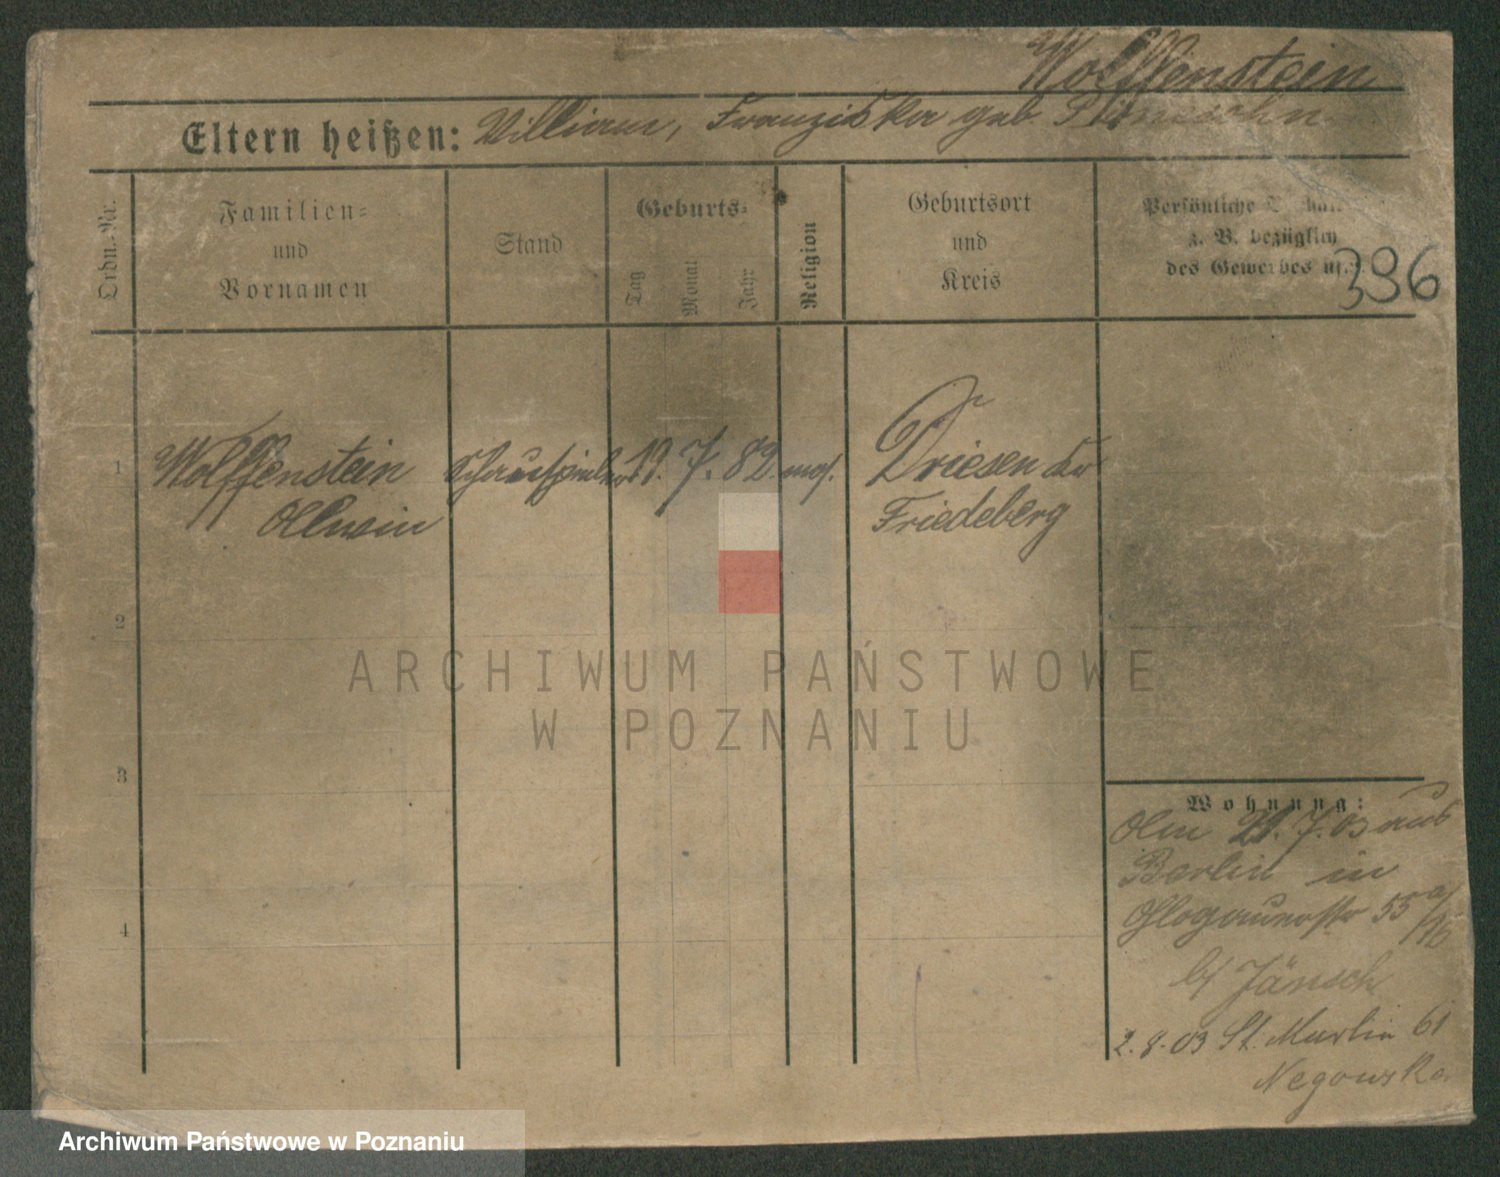 Wolffenstein
Eltern heißen: William, Franziska geb.
Ordn.-Nr.
Familien-
und
Vornamen
Stand
Geburts-
Tag
Monat
Jahr
Religion
Geburtsort
und
Kreis
Persönliche
z. B. bezüglich
des Gewerbes
396
1
Wolffenstein Schauspieler 19. 7. 82. mos. Driesen Kr
Alwin Friedeberg
2
3
4
Wohnung:
Am 29. 7. 03 aus
Berlin in
Glogauerstr 55
b/ Jänsch
2. 8. 03 St. Martin 61
Negowska
ARCHIWUM PAŃSTWOWE
W POZNANIU
Archiwum Państwowe w Poznaniu